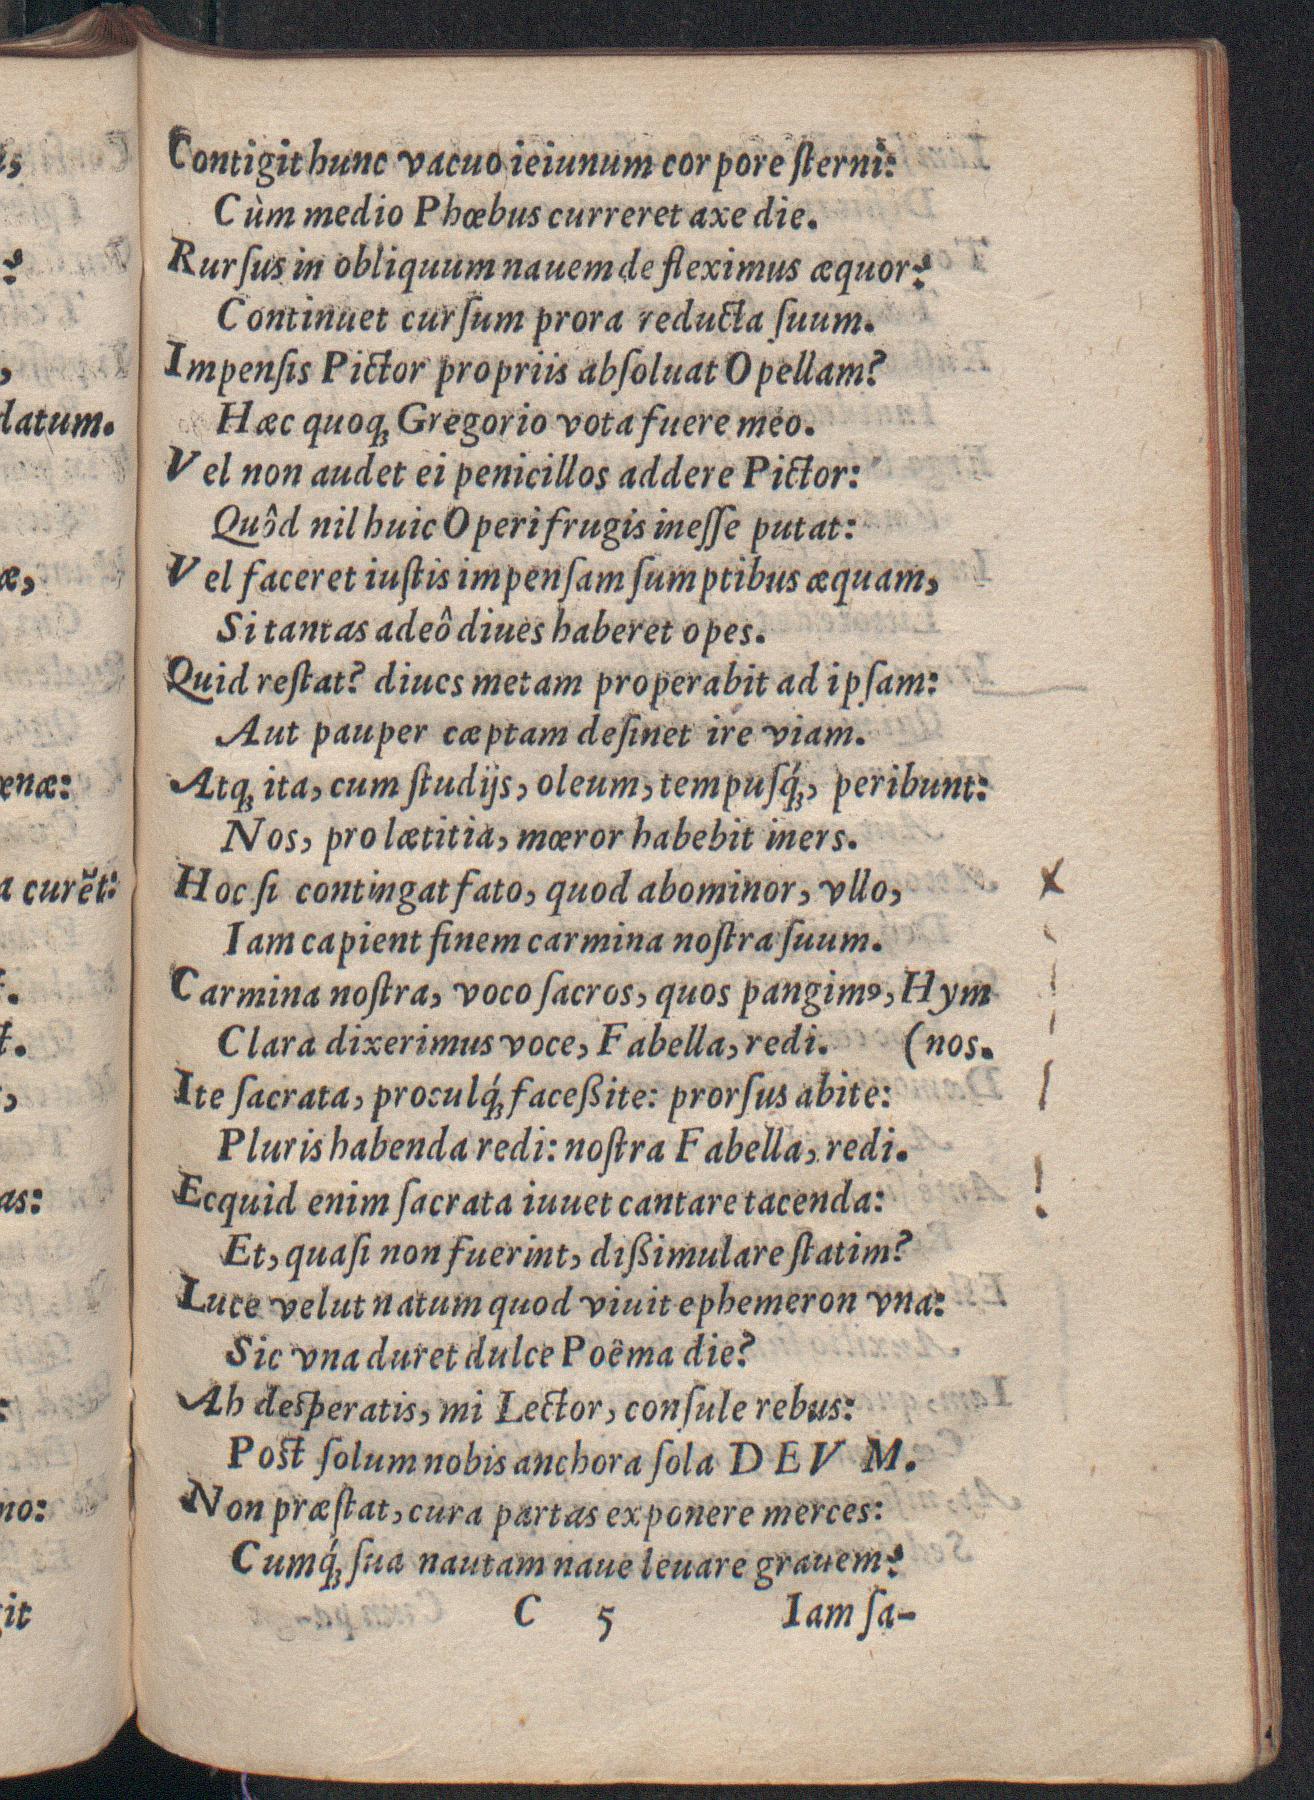 Contigit hunc vacuo ieiunum corpore ſterni:
Cùm medio Phœbus curreret axe die.
Rurſus in obliquum nauem defleximus æquor:
Continuet curſum prora reducta ſuum.
Impenſis Pictor propriis abſoluat Opellam?
Hæc quoq; Gregorio vota fuere meo.
Vel non audet ei penicillos addere Pictor:
Quôd nil huic Operi frugis ineſſe putat:
Vel faceret iuſtis impenſam ſumptibus æquam,
Si tantas adeô diues haberet opes.
Quid reſtat? diues metam properabit ad ipſam:
Aut pauper cæptam deſinet ire viam.
Atq; ita, cum ſtudijs, oleum, tempuſq́;, peribunt:
Nos, pro lætitia, mœror habebit iners.
Hoc ſi contingat fato, quod abominor, vllo,
Iam capient finem carmina noſtra ſuum.
Carmina noſtra, voco ſacros, quos pangimꝰ, Hym
Clara dixerimus voce, Fabella, redi. (nos.
Ite ſacrata, proculq́; faceßite: prorſus abite:
Pluris habenda redi: noſtra Fabella, redi.
Ecquid enim ſacrata iuuet cantare tacenda:
Et, quaſi non fuerint, dißimulare ſtatim?
Luce velut natum quod viuit ephemeron vna:
Sic vna duret dulce Poëma die?
Ah deſperatis, mi Lector, conſule rebus:
Poſt ſolum nobis anchora ſola DEVM.
Non præſtat, cura partas exponere merces:
Cumq́; ſua nautam naue leuare grauem?
C 5 Iam ſa-
datum.
æ,
enæ:
a curẽt:
as:
no:
it